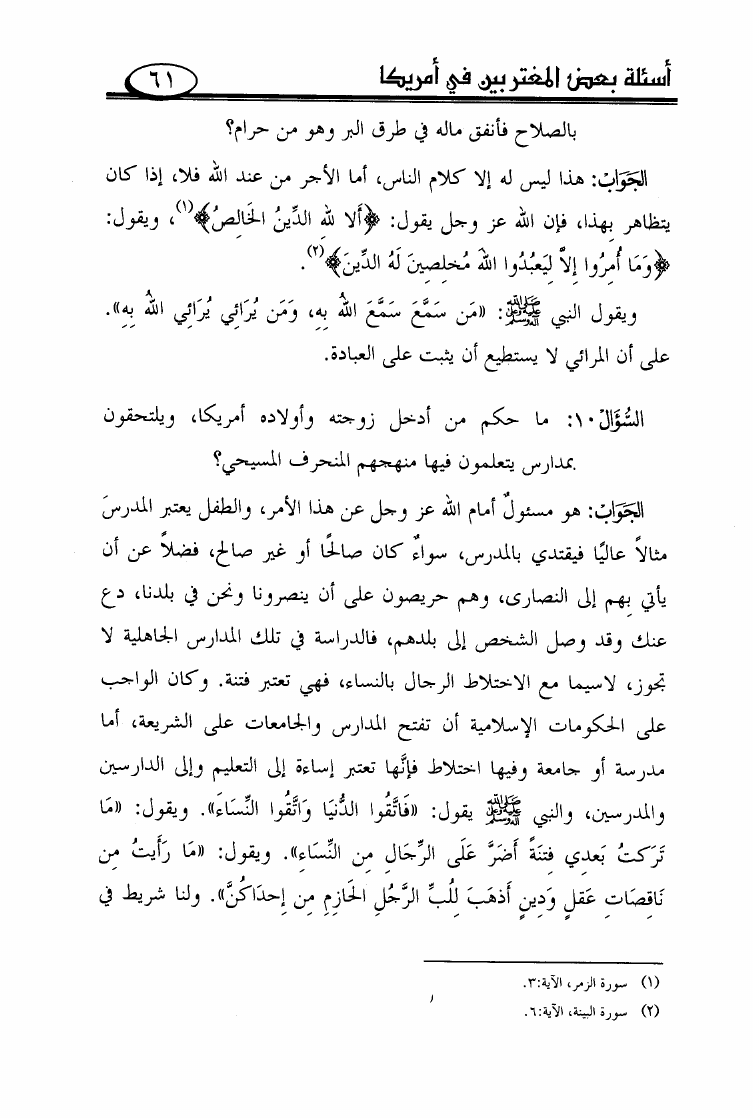 أسئلة بعض المغتربين في أمريكا
٦١
بالصلاح فأنفق ماله في طرق البر وهو من حرام؟
الجَوَابُ: هذا ليس له إلا كلام الناس، أما الأجر من عند الله فلا، إذا كان
يتظاهر بِهذا، فإن الله عز وجل يقول: ﴿أَلا للهِ الدِّينُ الخَالِصُ﴾(١)، ويقول:
﴿وَمَا أُمِرُوا إِلاَّ لِيَعبُدُوا اللهَ مُخلِصِينَ لَهُ الدِّينَ﴾(٢).
ويقول النبي ﷺ: «مَن سَمَّعَ سَمَّعَ اللهُ بِهِ، وَمَن يُرَائِي يُرَائِي اللهُ بِهِ».
على أن المرائي لا يستطيع أن يثبت على العبادة.
السُّؤَالُ١٠: ما حكم من أدخل زوجته وأولاده أمريكا، ويلتحقون
بمدارس يتعلمون فيها منهجهم المنحرف المسيحي؟
الجَوَابُ: هو مسئولٌ أمام الله عز وجل عن هذا الأمر، والطفل يعتبر المدرسَ
مثالاً عاليًا فيقتدي بالمدرس، سواءٌ كان صالحًا أو غير صالح، فضلاً عن أن
يأتي بِهم إلى النصارى، وهم حريصون على أن ينصرونا ونحن في بلدنا، دع
عنك وقد وصل الشخص إلى بلدهم، فالدراسة في تلك المدارس الجاهلية لا
تجوز، لاسيما مع الاختلاط الرجال بالنساء، فهي تعتبر فتنة. وكان الواجب
على الحكومات الإسلامية أن تفتح المدارس والجامعات على الشريعة، أما
مدرسة أو جامعة وفيها اختلاط فإنَّها تعتبر إساءة إلى التعليم وإلى الدارسين
والمدرسين، والنبي ﷺ يقول: «فَاتَّقُوا الدُّنيَا وَاتَّقُوا النِّسَاءَ». ويقول: «مَا
تَرَكتُ بَعدِي فِتنَةً أَضَرَّ عَلَى الرِّجَالِ مِن النِّسَاءِ». ويقول: «مَا رَأَيتُ مِن
نَاقِصَاتِ عَقلٍ وَدِينٍ أَذهَبَ لِلُبِّ الرَّجُلِ الحَازِمِ مِن إِحدَاكُنَّ». ولنا شريط في
(١) سورة الزمر، الآية:٣.
(٢) سورة البينة، الآية:٦.